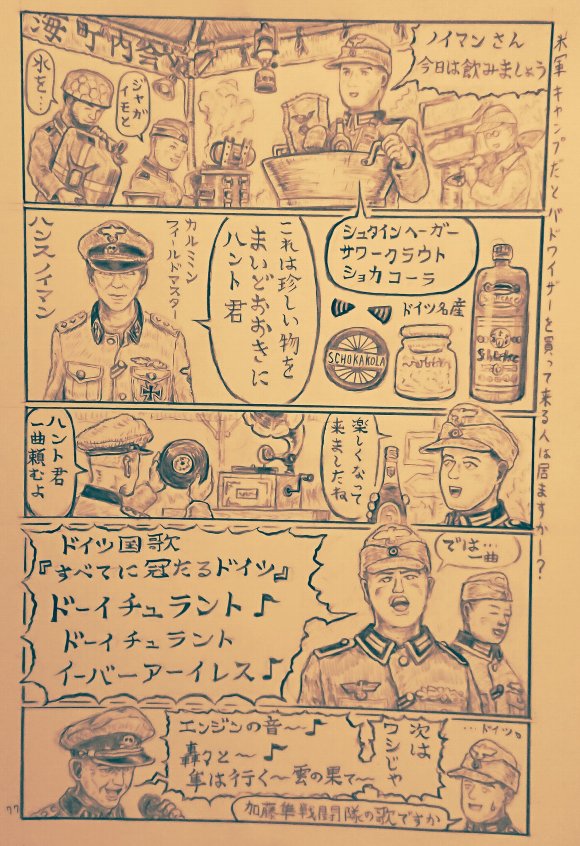 米軍キャンプだとバドワイザーを買って来る人は居ますかー？
海町内会
ノイマンさん
今日は飲みましょう
ジャが
イモと
氷を…
シュタインヘーガー
サワークラウト
ショカコーラ
ドイツ名産
SCHOKAKOLA
これは珍しい物を
まいどおおきに
ハント君
カルミン
フィールドマスター
ハンスノイマン
楽しくなって
来ましたね
ハント君
一曲頼むよ
では…
一曲
ドイツ国歌
『すべてに冠たるドイツ』
ドーイチュラント♪
ドーイチュラント
イーバーアーイレス♪
…ドイツ。
次は
ワシじゃ
エンジンの音〜♪
轟々と〜♪
隼は行く〜雲の果て〜
加藤隼戦闘隊の歌ですか
77